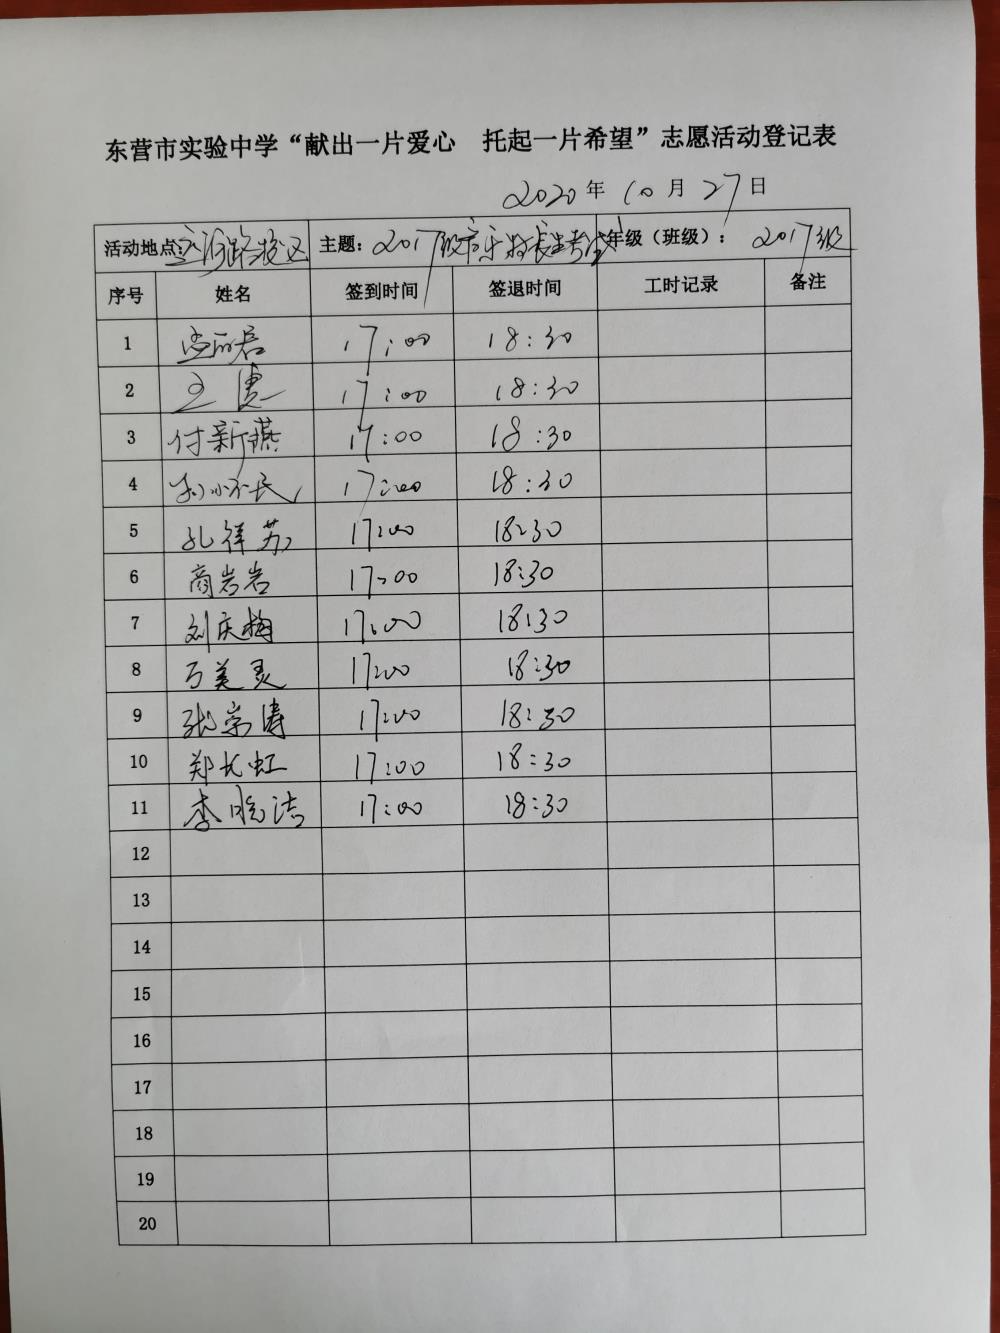 东营市实验中学“献出一片爱心 托起一片希望”志愿活动登记表
2020年10月27日
活动地点: 校区 主题: 2017级音乐特长生考试 年级（班级）: 2017级
序号 姓名 签到时间 签退时间 工时记录 备注
1 孟丽君 17:00 18:30
2 王 17:00 18:30
3 付新燕 17:00 18:30
4 17:00 18:30
5 孔祥苏 17:00 18:30
6 商岩岩 17:00 18:30
7 刘庆梅 17:00 18:30
8 万美灵 17:00 18:30
9 张宗涛 17:00 18:30
10 郑长虹 17:00 18:30
11 李晓洁 17:00 18:30
12
13
14
15
16
17
18
19
20